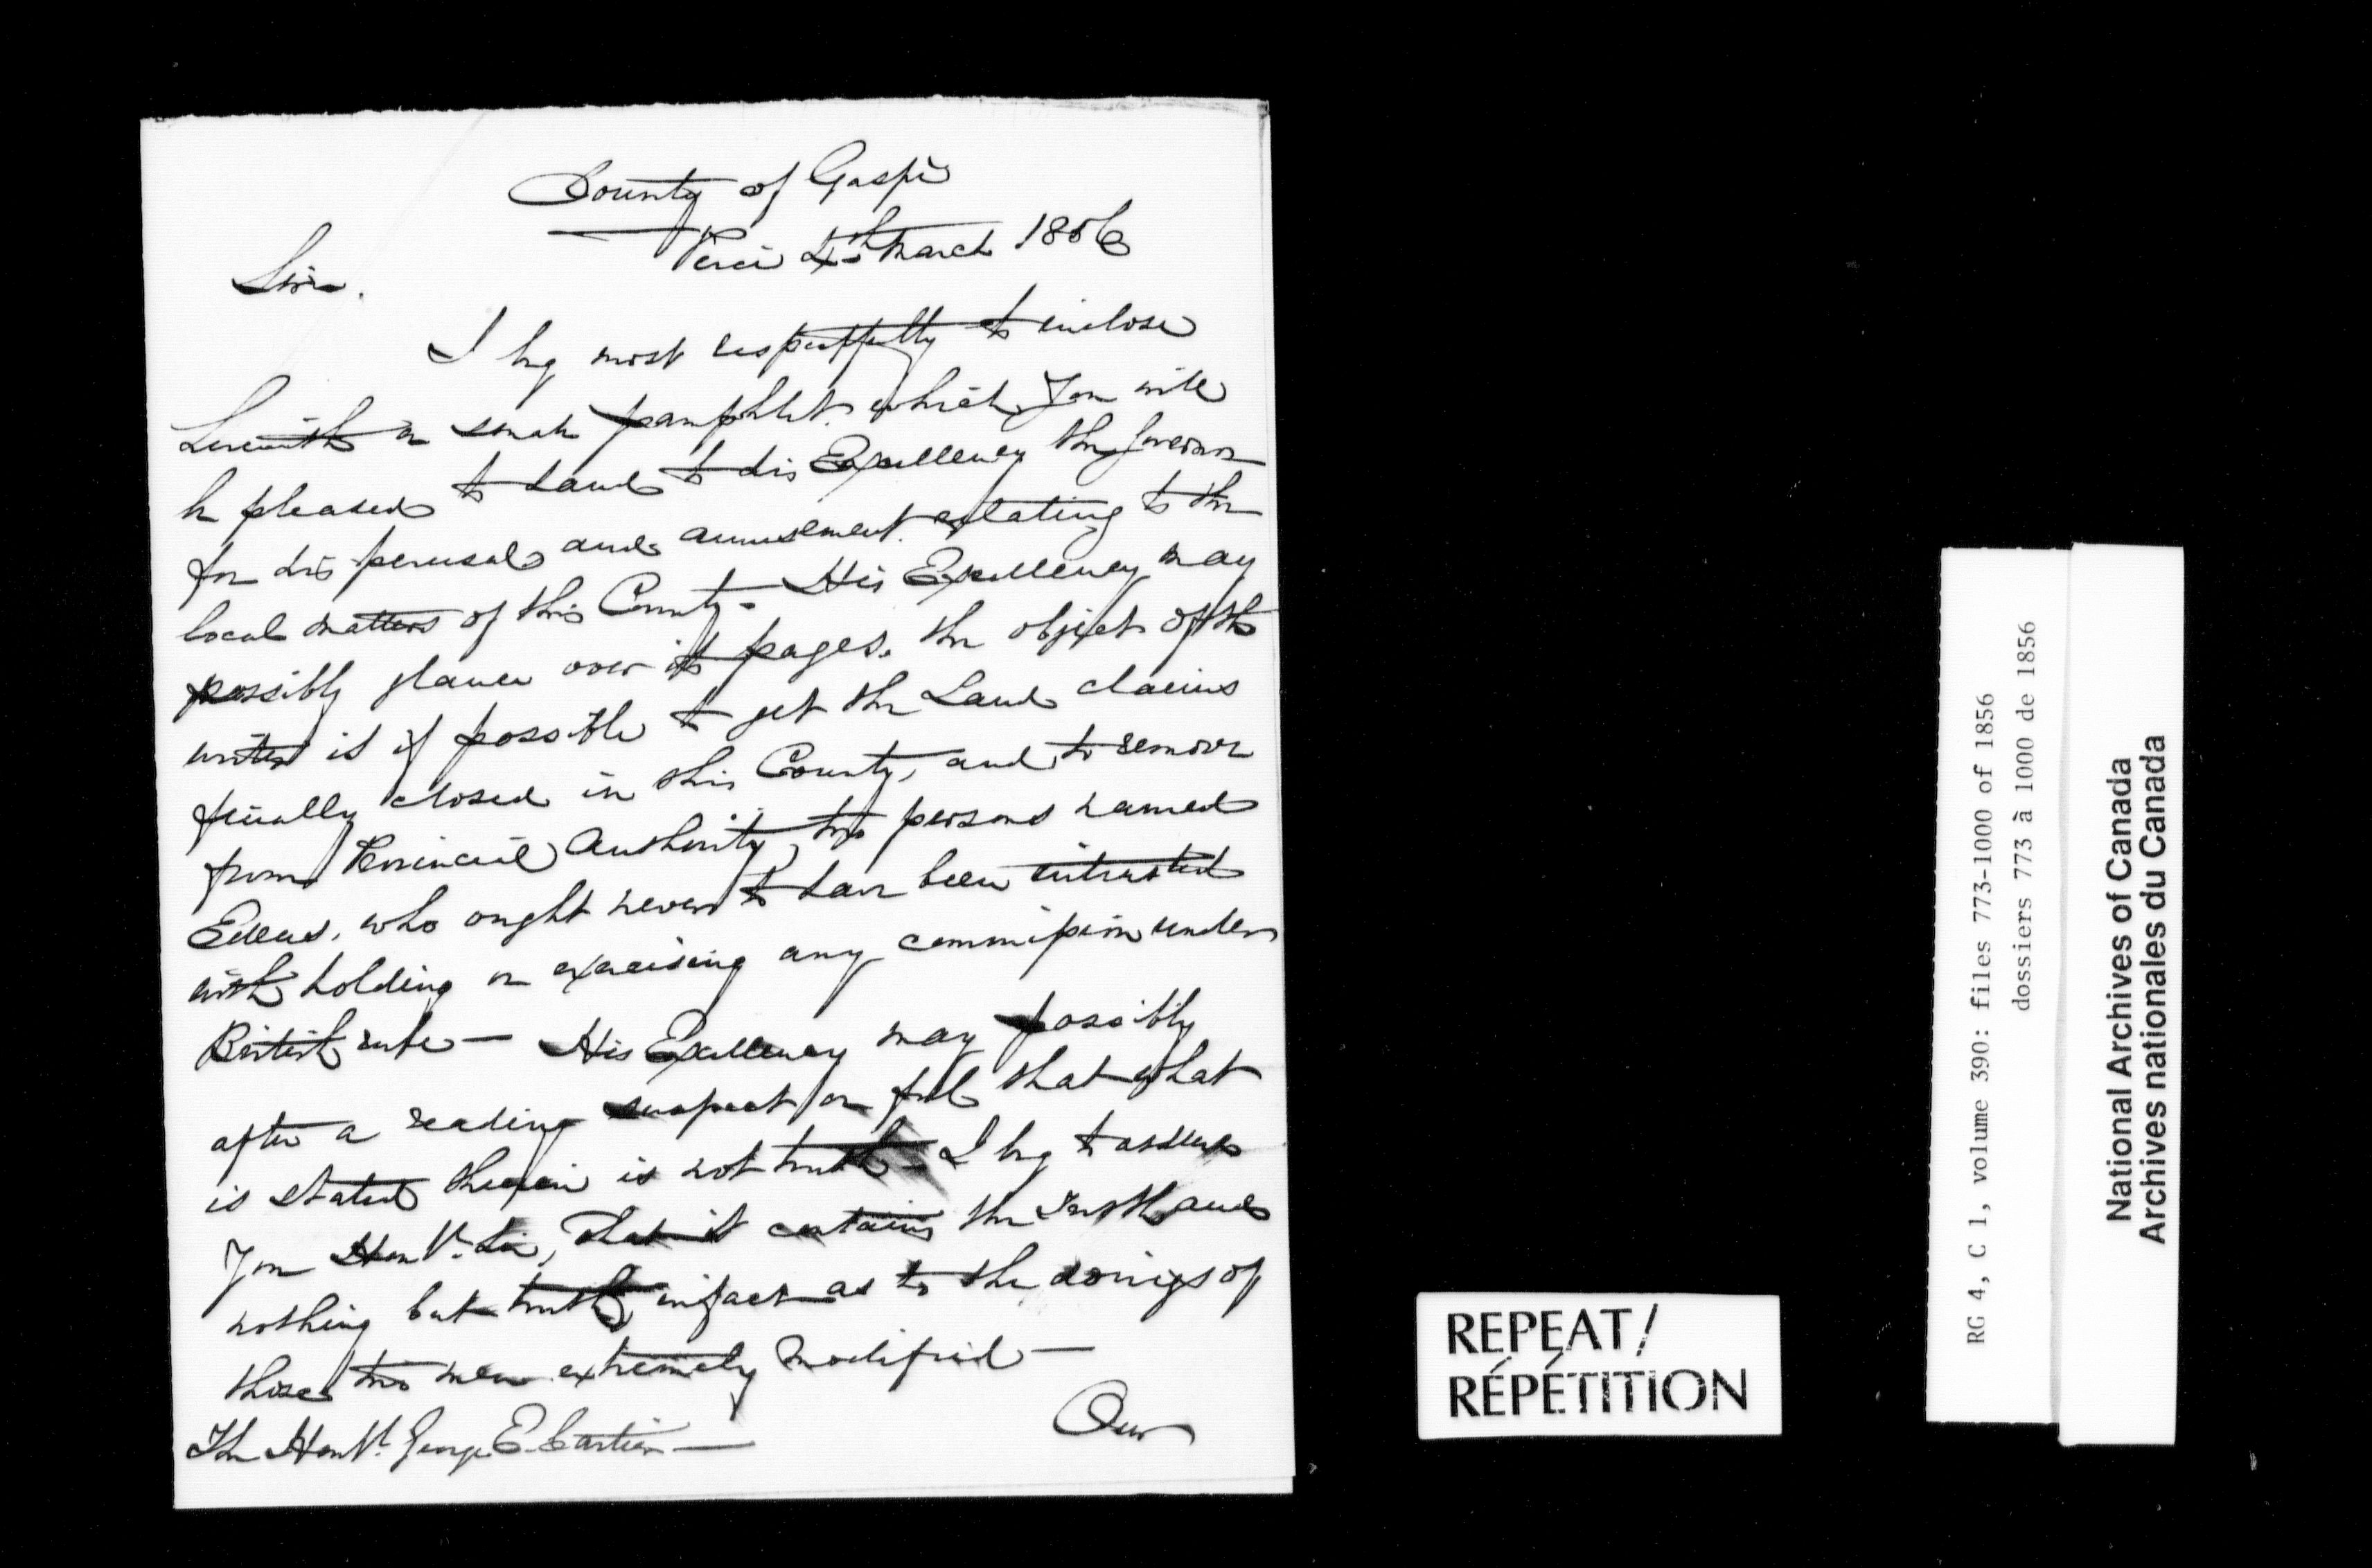 County of Gaspé
Percé 4th March 1856
Sir.
I beg most respectfully to enclose
herewith a small pamphlet. which You will
be pleased to hand to his Excellency the Governor
for his perusal and amusement. relating to the
local matters of this County - His Excellency may
possibly glance over its pages. the object of the
writer is if possible to get the Land claims
finally closed in this County, and to remove
from Provincial Authority, two persons named
who ought never to have been intrusted
with holding or exercising any commission under
British rule - His Excellency may possibly
after a reading suspect or feel that what
is stated therein is not truth - I beg to assure
You Honble. Sir, that it contains the truth and
nothing but truth, in fact as to the doings of
those two men extremely modified -
The Honble. George E. Cartier -
Our
REPEAT/
RÉPÉTITION
RG 4, C 1, volume 390: files 773-1000 of 1856
dossiers 773 à 1000 de 1856
National Archives of Canada
Archives nationales du Canada